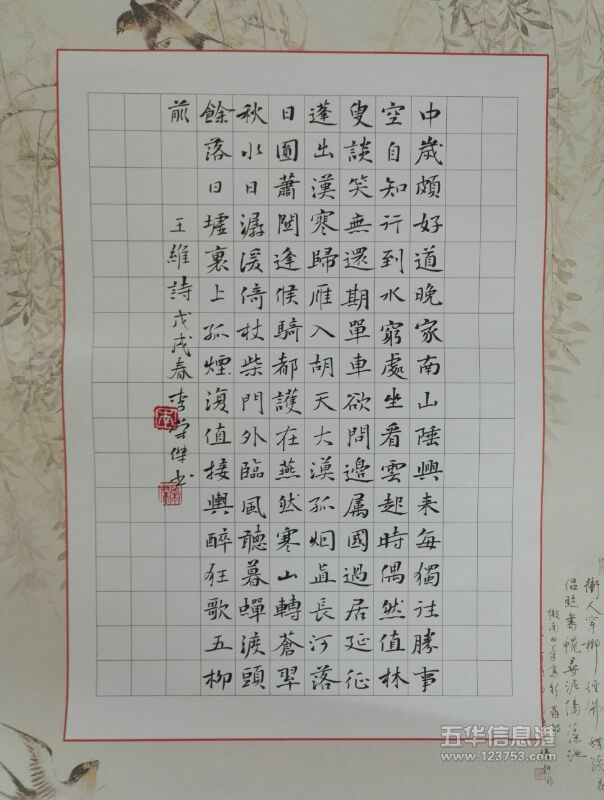 中歲頗好道晚家南山陲興来每獨往勝事
空自知行到水窮處坐看雲起時偶然值林
叟談笑無還期單車欲問邊属國過居延征
蓬出漢寒歸雁入胡天大漠孤烟直長河落
日圓蕭関逢候騎都護在燕然寒山轉蒼翠
秋水日潺湲倚杖柴門外臨風聽暮蟬渡頭
餘落日墟裏上孤煙復值接輿醉狂歌五柳
前 王維詩戊戌春李榮傑书
侣臨書幌尋泥傍藻池
五华信息港
www.123753.com